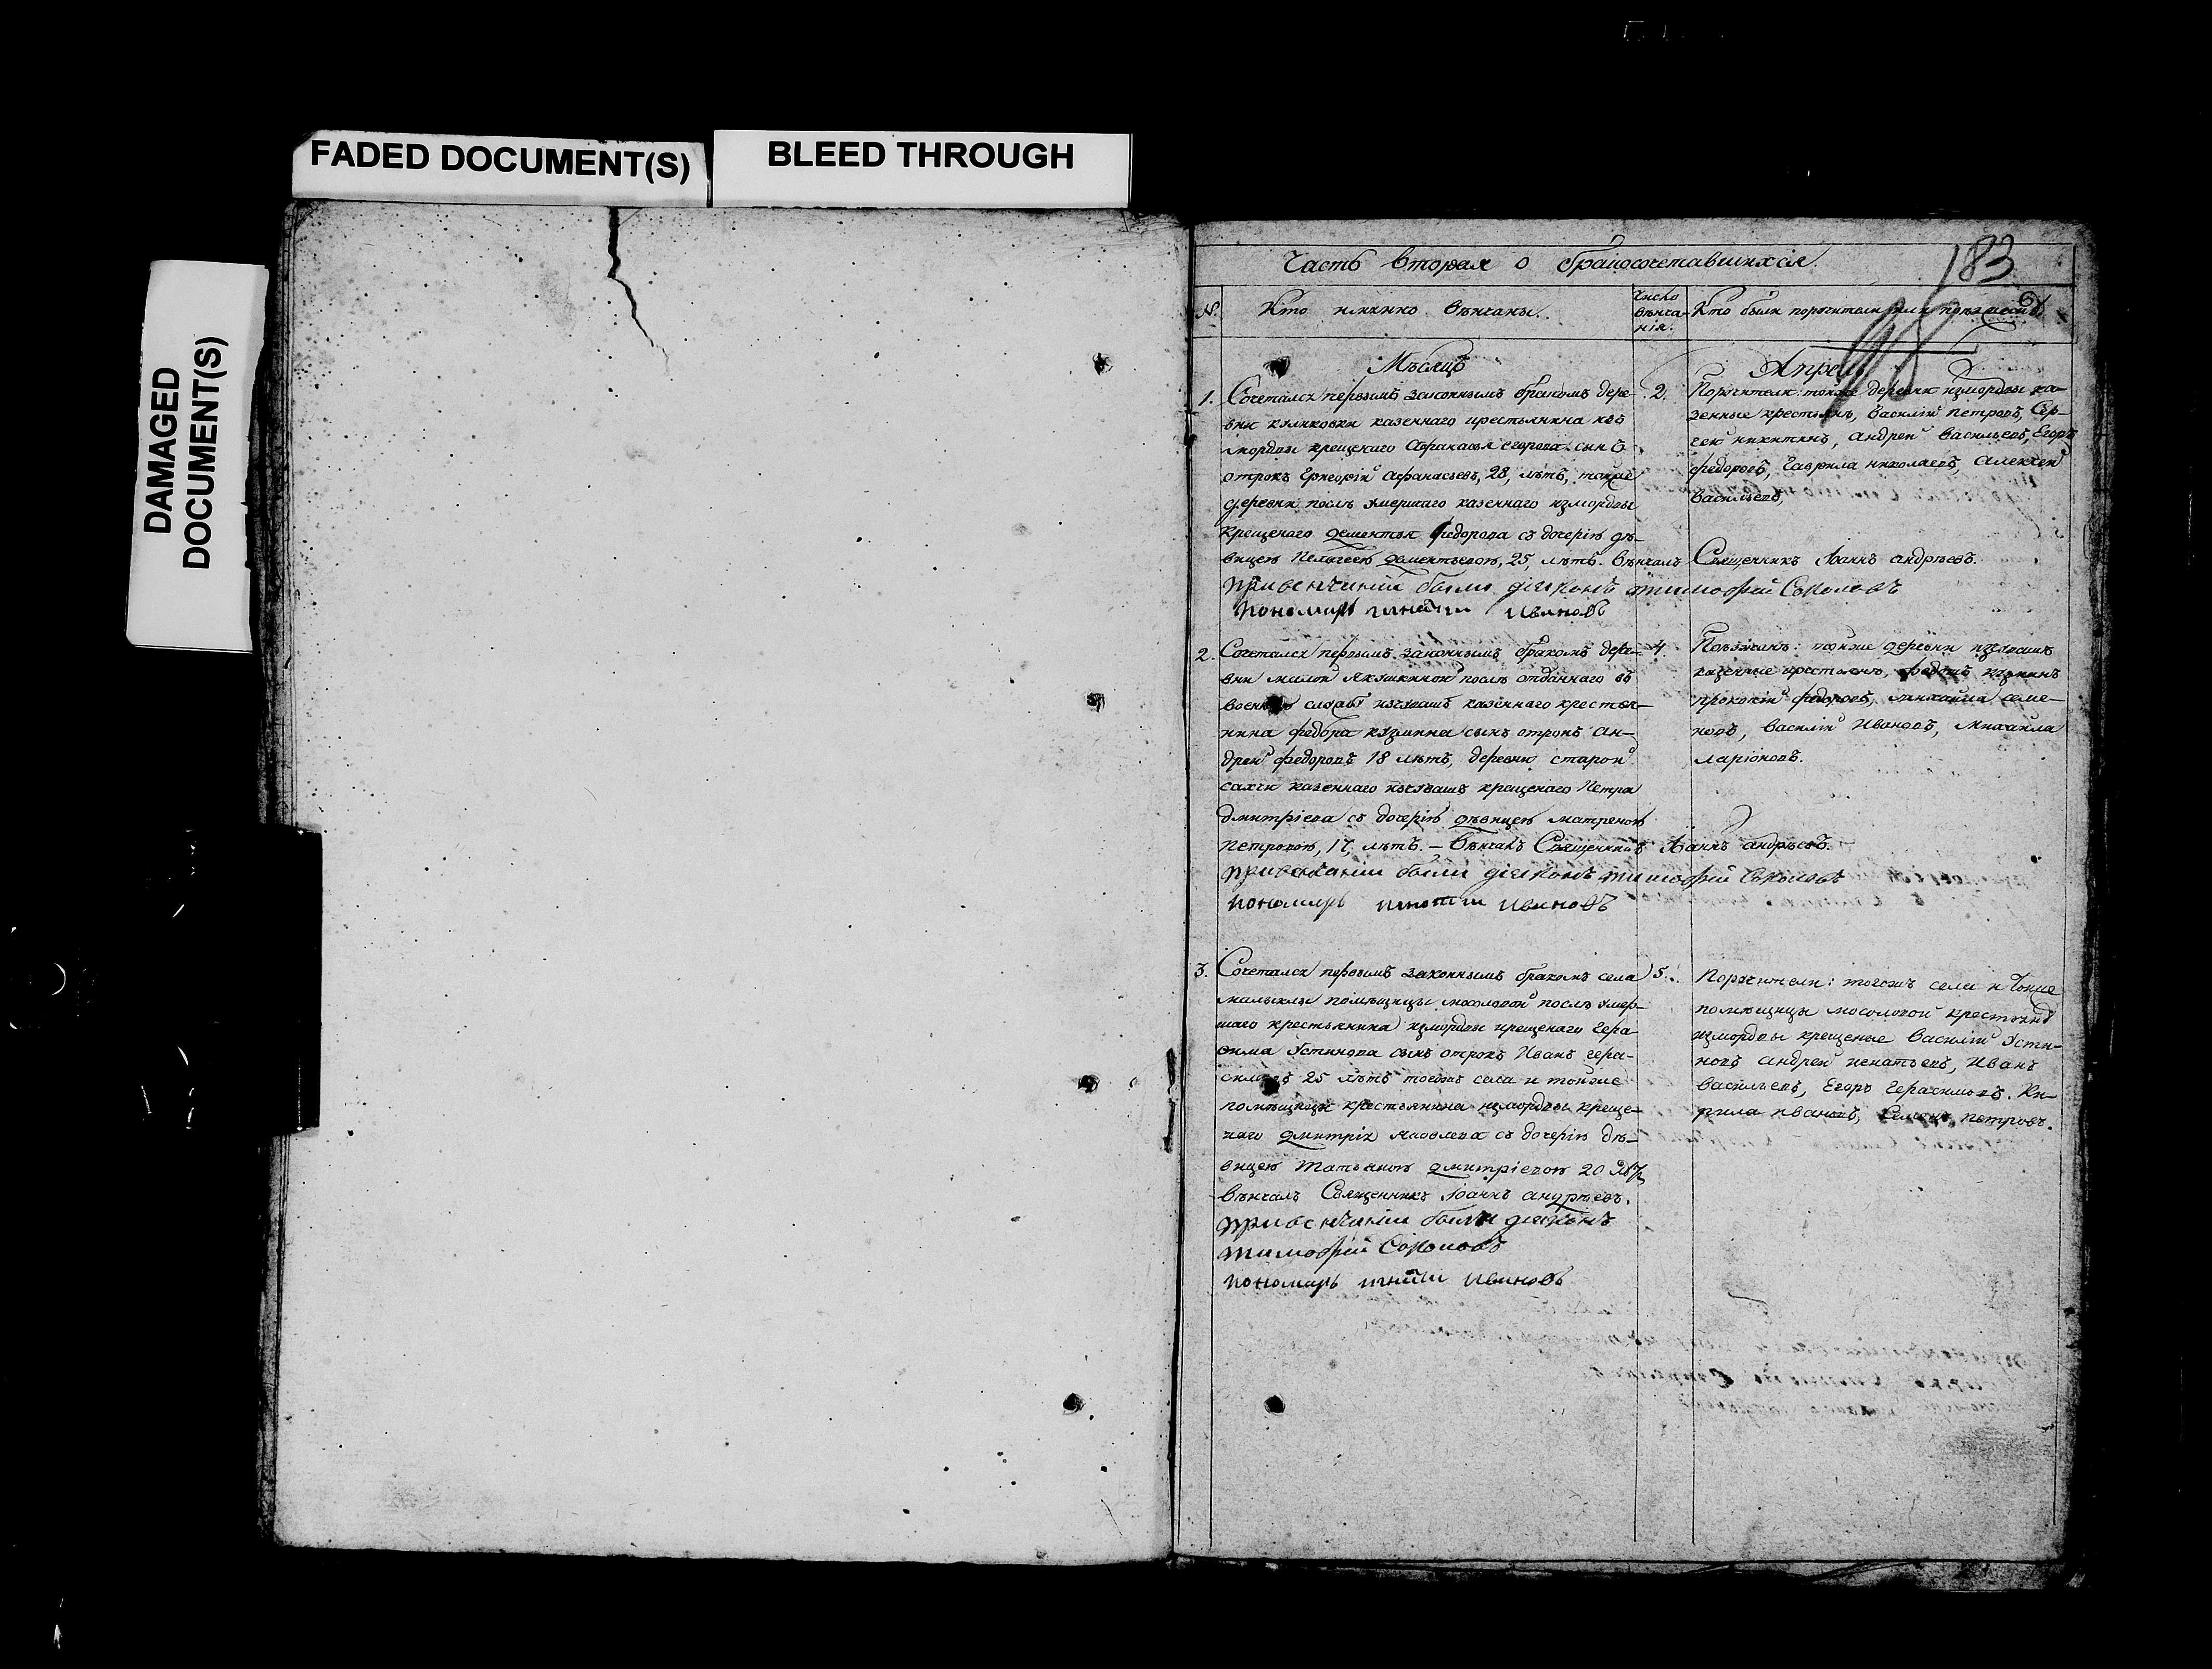 FADED DOCUMENT(S)
BLEED THROUGH
DAMAGED
DOCUMENT(S)
183
Часть вторая о бракосочетавшихся.
№.
Кто имянно вѣнчаны.
Число
вѣнча-
нія.
Кто были поручители или поѣзжане
Мѣсяцъ
Апрель
1. Сочетался первымъ законнымъ бракомъ дере-
вни куликовки казеннаго крестьянина изъ
мордвы крещенаго Афанасья егорова сынъ
отрокъ Григорій Афанасьевъ, 28, лѣтъ, тойже
деревни послѣ умершаго казеннаго измордвы
крещенаго дементья федорова съ дочерію дѣ-
вицею Пелагеею дементьевою, 25, лѣтъ. Вѣнчалъ Священникъ Іоаннъ андрѣевъ.
при венчаніи были діаконъ тимофей Соколовъ
пономарь игнатій ивановъ
2.
Поручители: тойже деревни измордвы ка-
зенные крестьянъ, василій петровъ, Сер-
гей никитинъ, андрей васильевъ, Егоръ
федоровъ, гаврила николаевъ, алексей
васильевъ,
2. Сочетался первымъ законнымъ бракомъ дере-
вни малой Якушкиной послѣ отданнаго въ
военную службу изчувашъ казеннаго крестья-
нина федора кузмина сынъ отрокъ ан-
дрей федоровъ 18 лѣтъ, деревни старой
сахчи казеннаго изчувашъ крещенаго Петра
дмитріева съ дочерію дѣвицею матреною
петровою, 17, лѣтъ. — Вѣнчалъ Священникъ Іоаннъ андрѣевъ.
при венчаніи были діаконъ тимофей Соколовъ
пономарь игнатій ивановъ
4.
Поѣзжанъ: тойже деревни изчувашъ
казенные крестьянъ, федотъ кузминъ
прокопій федоровъ, михайла семе-
новъ, василій Ивановъ, михайла
ларіоновъ.
3. Сочетался первымъ законнымъ бракомъ села
малыклы помѣщицы мосоловой послѣ умер-
шаго крестьянина измордвы крещенаго гера-
сима Устинова сынъ отрокъ Иванъ гера-
симовъ 25 лѣтъ тогожъ села и тойже
помѣщицы крестьянина измордвы креще-
наго дмитрія яковлева съ дочерію дѣ-
вицею татьяною дмитріевою 20 лѣтъ
вѣнчалъ Священникъ Іоаннъ андрѣевъ.
при венчаніи были діаконъ
тимофей Соколовъ
пономарь игнатій ивановъ
5.
Поручители: тогожъ села и тойже
помѣщицы мосоловой крестьянъ
измордвы крещеные василій Усти-
новъ андрей игнатьевъ, Иванъ
васильевъ, Егоръ Герасимовъ. Ки-
рила ивановъ, Семенъ петровъ.